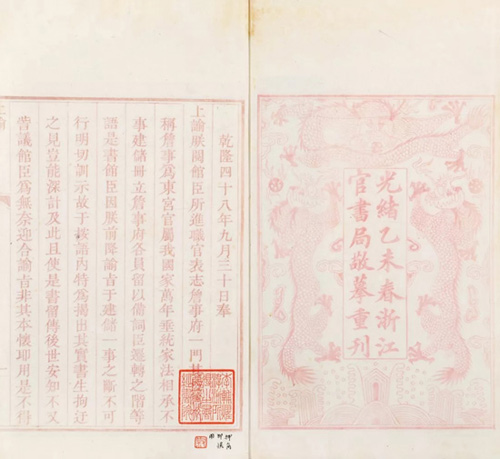 光緒乙未春浙江
官書局敬摹重刊
乾隆四十八年九月三十日奉
上諭朕閱館臣所進職官表志詹事府一門
稱詹事爲東宮官屬我國家萬年垂統家法相承不
事建儲冊立詹事府各員留以備詞臣遷轉之階等
語是書館臣因朕前降諭旨于建儲一事之斷不可
行明切訓示故于按語內特爲揭出其實書生拘迂
之見豈能深計及此且使是書留傳後世安知不又
訾議館臣爲無奈迎合諭旨非其本懷卽用是不得